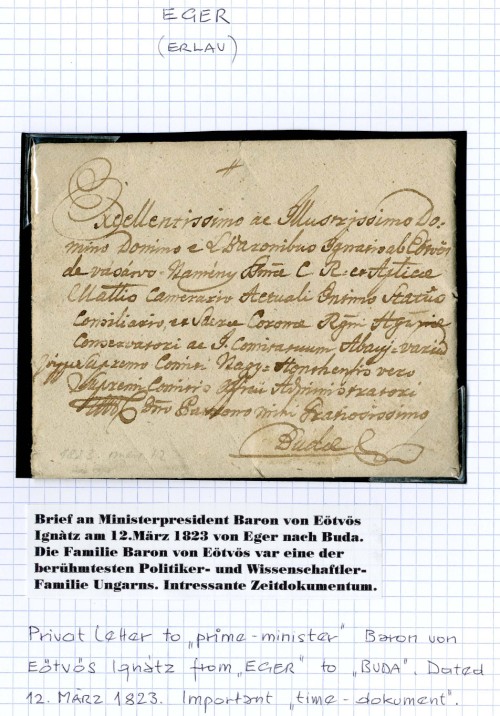 EGER
(ERLAU)
Excellentissimo ac Illustrissimo Do-
mino Domino e L Baronibus Ignatio ab Eötvös
de vásáros-Namény C. R. et Apticae
Mattis Camerario Actuali Intimo Status
Consiliario, et Sacrae Coronae Regni
Conservatori ac I. Comitatuum Abauj-varie
Supremo Comiti Nagy-Honthensis vero
Supremi Comitis Officii Administratori
Dno Patrono mihi Gratiosissimo
Budae
1823
Brief an Ministerpresident Baron von Eötvös
Ignàtz am 12.März 1823 von Eger nach Buda.
Die Familie Baron von Eötvös var eine der
berühmtesten Politiker- und Wissenschaftler-
Familie Ungarns. Intressante Zeitdokumentum.
Privat letter to „prime-minister" Baron von
Eötvös Ignàtz from „EGER" to „BUDA". Dated
12. MÄRZ 1823. Important „time-dokument".